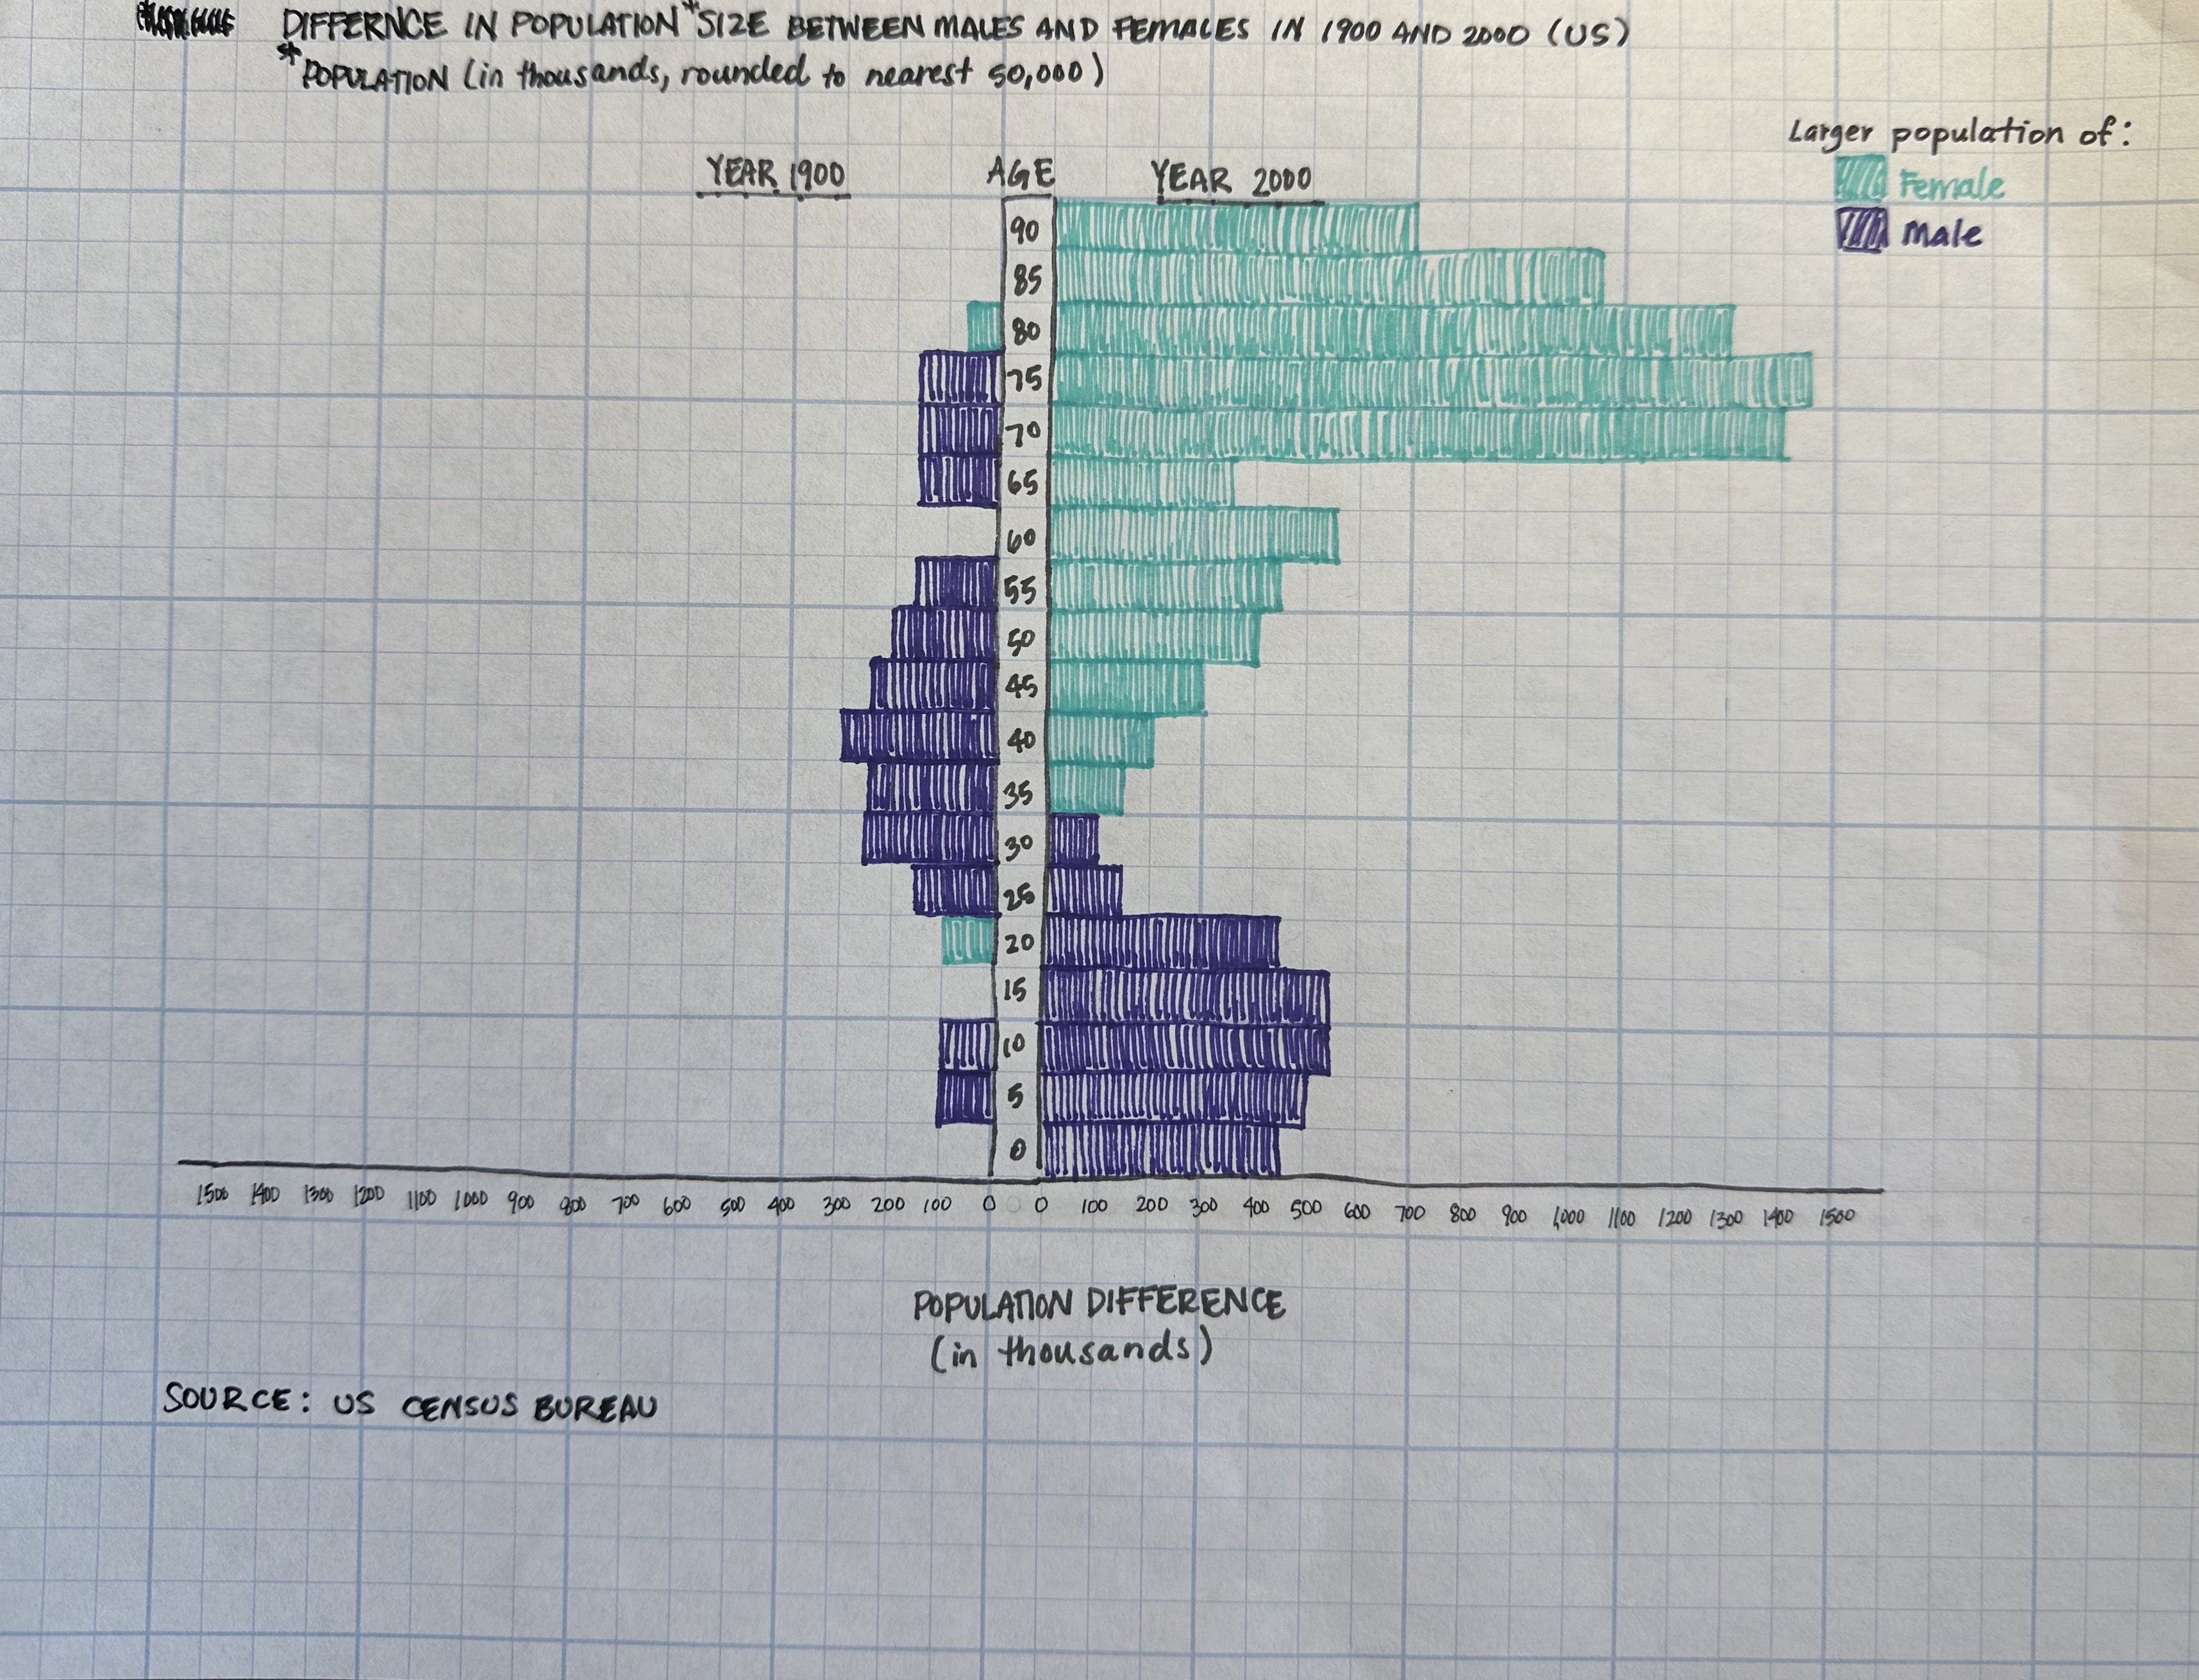 DIFFERNCE IN POPULATION* SIZE BETWEEN MALES AND FEMALES IN 1900 AND 2000 (US)
*POPULATION (in thousands, rounded to nearest 50,000)
Larger population of:
Female
Male
YEAR 1900 AGE YEAR 2000
90
85
80
75
70
65
60
55
50
45
40
35
30
25
20
15
10
5
0
1500 1400 1300 1200 1100 1000 900 800 700 600 500 400 300 200 100 0 0 0 100 200 300 400 500 600 700 800 900 1,000 1100 1200 1300 1400 1500
POPULATION DIFFERENCE
(in thousands)
SOURCE: US CENSUS BUREAU